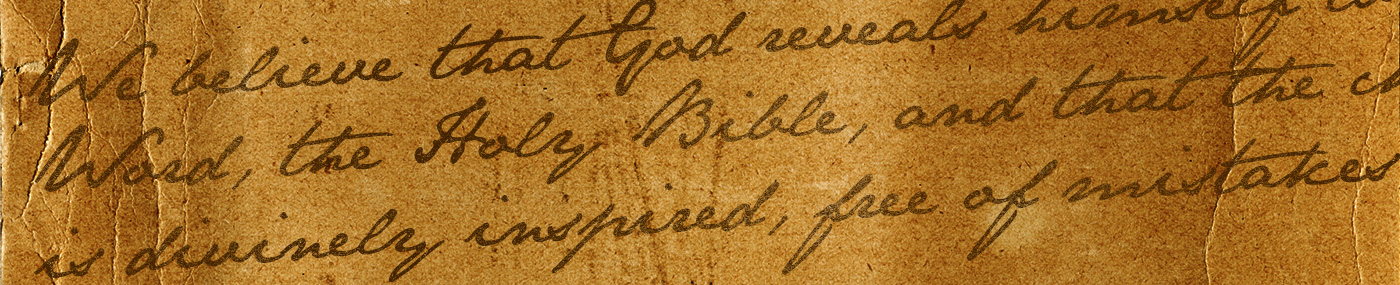 We believe that God reveals himself
Word, the Holy Bible, and that the
is divinely inspired, free of mistakes